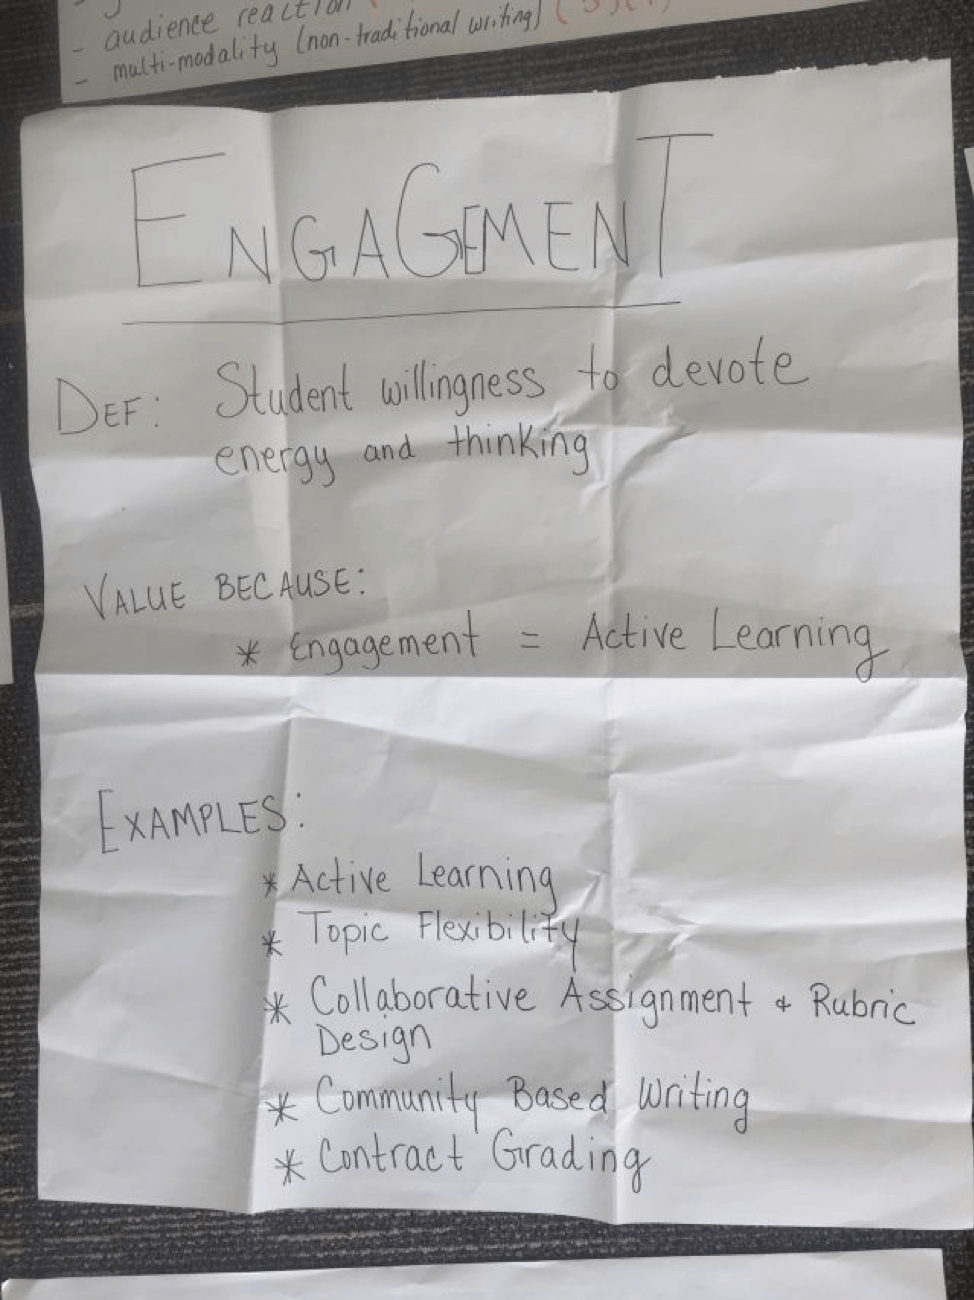 - audience reaction
- multi-modality (non-traditional writing)
ENGAGEMENT
DEF: Student willingness to devote
energy and thinking
VALUE BECAUSE:
* Engagement = Active Learning
EXAMPLES:
* Active Learning
* Topic Flexibility
* Collaborative Assignment + Rubric
Design
* Community Based Writing
* Contract Grading